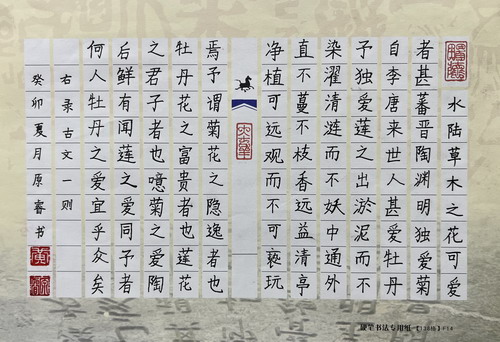 水陆草木之花可爱
者甚蕃晋陶渊明独爱菊
自李唐来世人甚爱牡丹
予独爱莲之出淤泥而不
染濯清涟而不妖中通外
直不蔓不枝香远益清亭
净植可远观而不可亵玩
焉予谓菊花之隐逸者也
牡丹花之富贵者也莲花
之君子者也噫菊之爱陶
后鲜有闻莲之爱同予者
何人牡丹之爱宜乎众矣
右录古文一则
癸卯夏月原睿书
硬笔书法专用纸